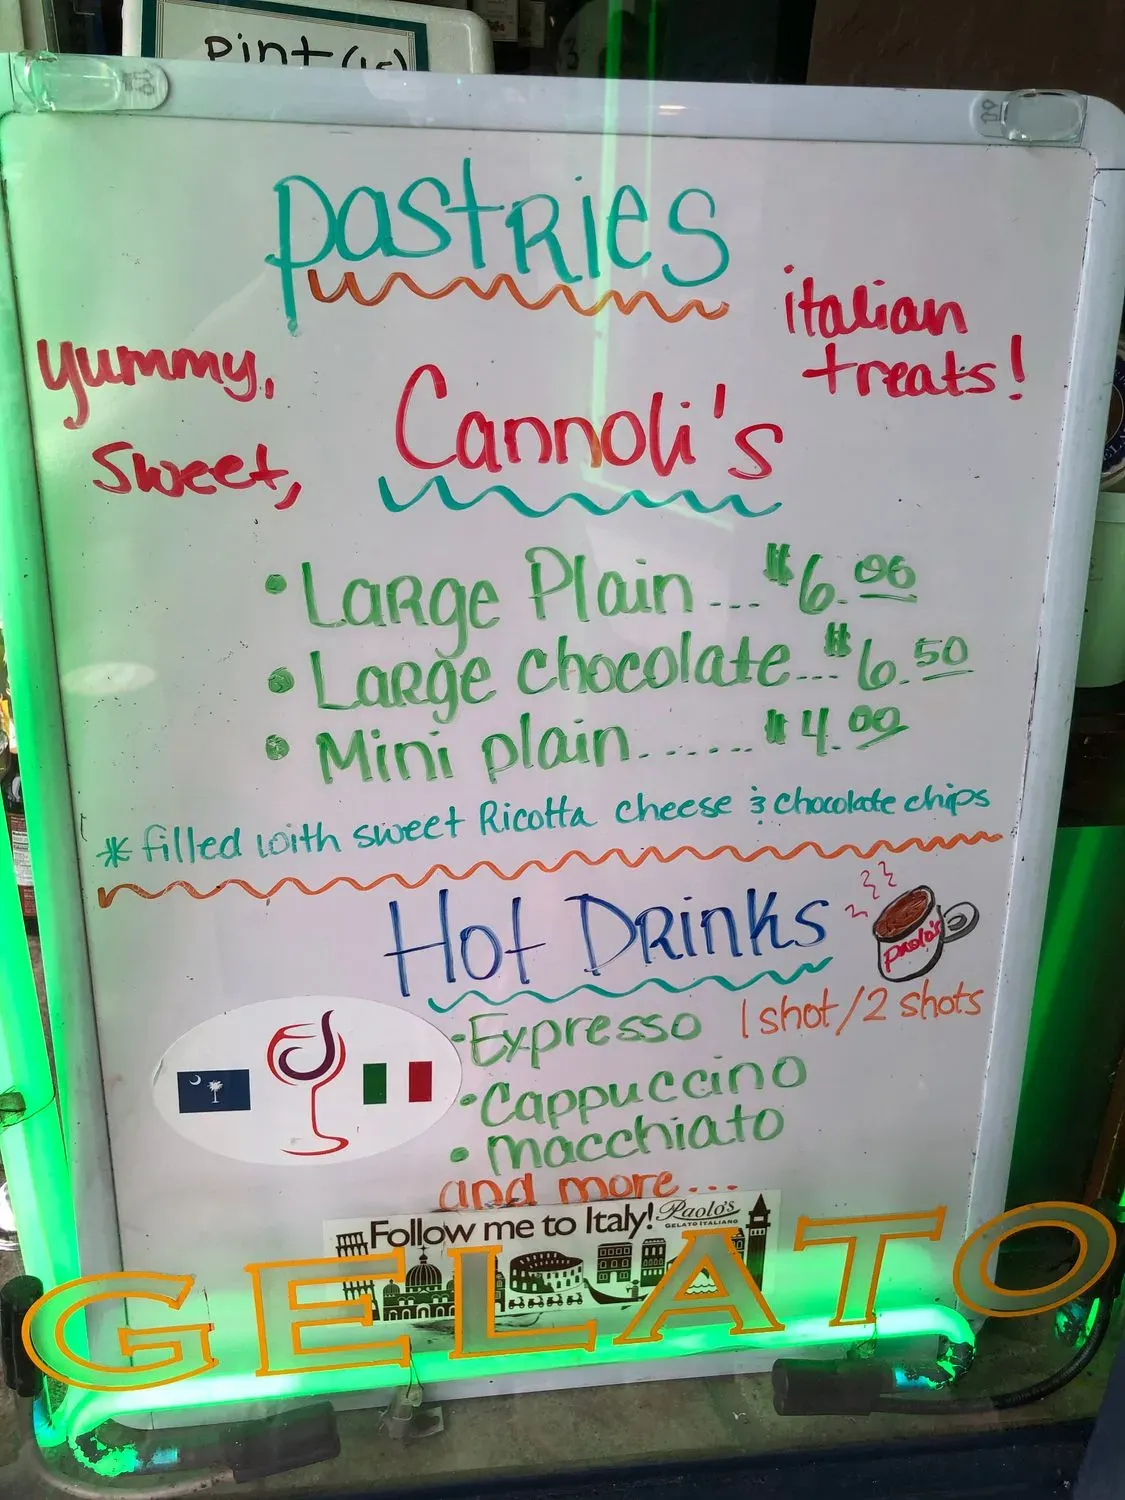 Pint (15)
Pastries
italian
treats!
Yummy,
Sweet,
Cannoli's
• Large Plain ... $6.00
• Large Chocolate... $6.50
• Mini plain....... $4.00
* filled with sweet Ricotta cheese & chocolate chips
Hot Drinks
Paolo's
• Expresso 1 shot/2 shots
• Cappuccino
• Macchiato
and more...
Follow me to Italy!
Paolo's
GELATO ITALIANO
GELATO